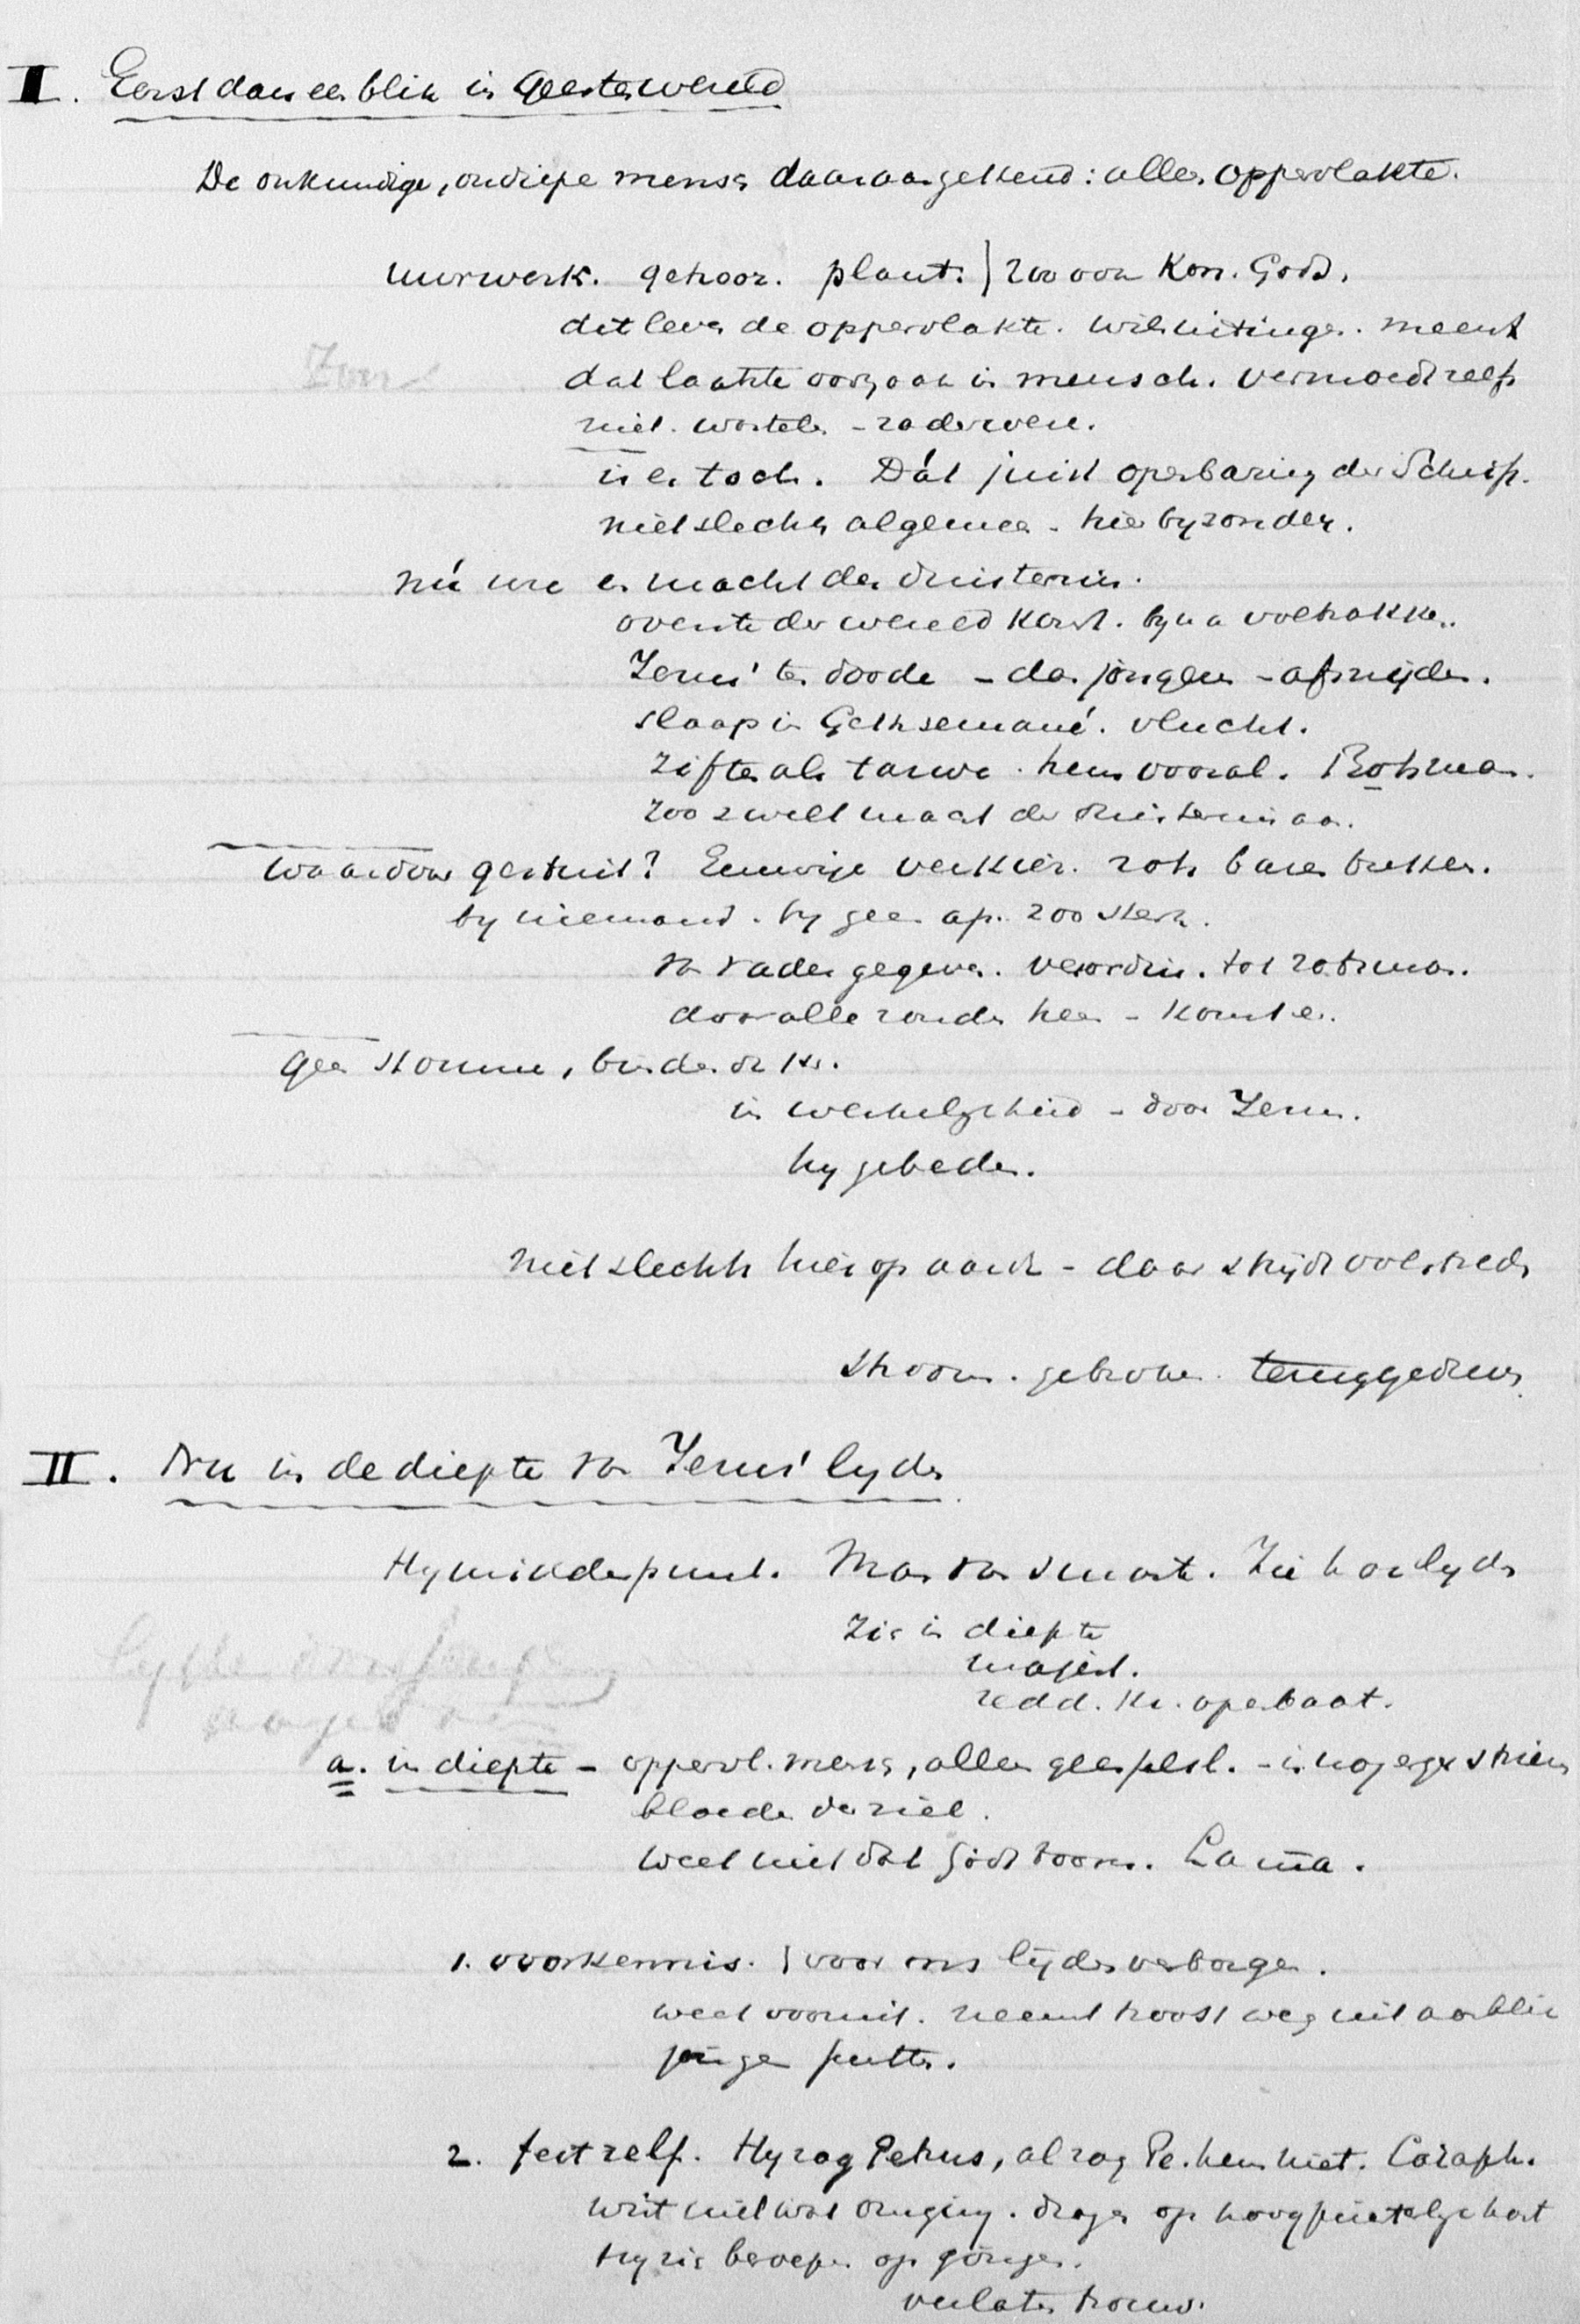 I. Eerst dan een blik in geestenwereld
De onkundige, ondiepe mensch daaraan gekend: alles oppervlakte.
uurwerk. gehoor. plant. } zoo ook Kon. Gods.
dit leven de oppervlakte. wilsuitingen. meent
dat laatste oorzaak in mensch. vermoedt zelfs
niet. wortels - raderwerk.
is er toch. Dát juist openbaring der Schrift.
niet slechts algemeen - hier byzonder.
nú ure en macht der duisternis.
overste der wereld komt. byna voltrokken.
Jezus' te dooden - de jongeren - afsnijden.
slaap in Gethsemané. vlucht.
ziften als tarwe. hem vooral. Rotsman.
zoo zwelt macht der duisternis aan.
Waardoor gestuit? Eeuwige verkiez. rots baren breken.
by niemand. by geen ap. zoo sterk.
van Vader gegeven. verordin. tot rotsman.
door alle zonden heen - komt er.
geen stomme, blinde
in werkelijkheid - door Jezus.
hy gebeden.
niet slechts hier op aarde - daar strijd volstreden
stroom. gebroken. teruggedreven
II. Nu in de diepte van Jezus' lyden
Hy middelpunt. Man van smarte. Zie hoe lyden
Zie in diepte
majest.
redd. kr. openbaart.
a. in diepte - oppervl. mensch, alleen geeselst. - in nog erger striem
bloeden der ziel.
weet niet dat Gods toorn. Lama.
1. voorkennis. } voor ons lijden verborgen.
weet vooruit. neemt troost weg uit aanblik
2. feit zelf. Hy zag Petrus, al zag Pe. hem niet. Cajaph.
wist niet wat omging. dragen op hoogpriesterlyk hart
Hy zie beroepen op jongeren.
verlaten trouw.